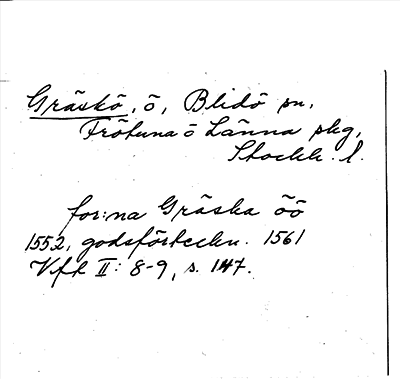 Gräskö, ö, Blidö sn,
Frötuna o Länna skg,
Stockh. l.
for:na Gräska öö
1552, godsförteckn. 1561
Vfk II: 8-9, s. 147.